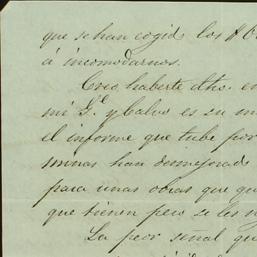 que se han cogido los
á incomodarnos.
Creo haberte dho. en
mi G.e y Calvo es su
el informe que tube por
minas han desmejorado
para unas obras que que
que tienen pero se les
La peor señal que